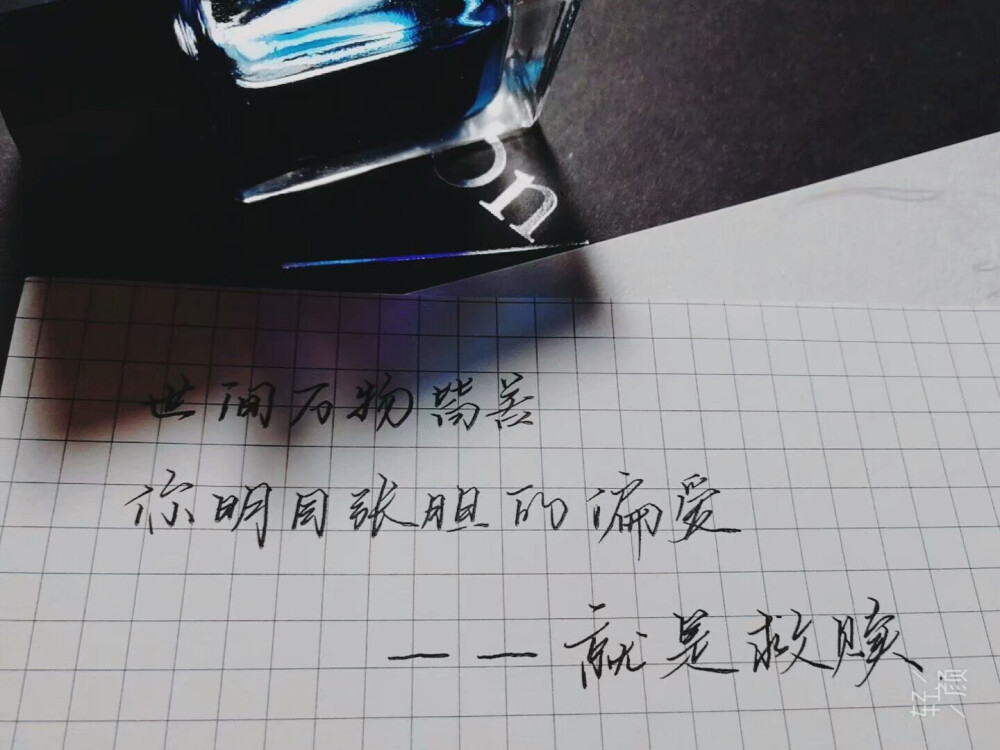 on
世间万物皆苦
你明目张胆的偏爱
——就是救赎
轻颜